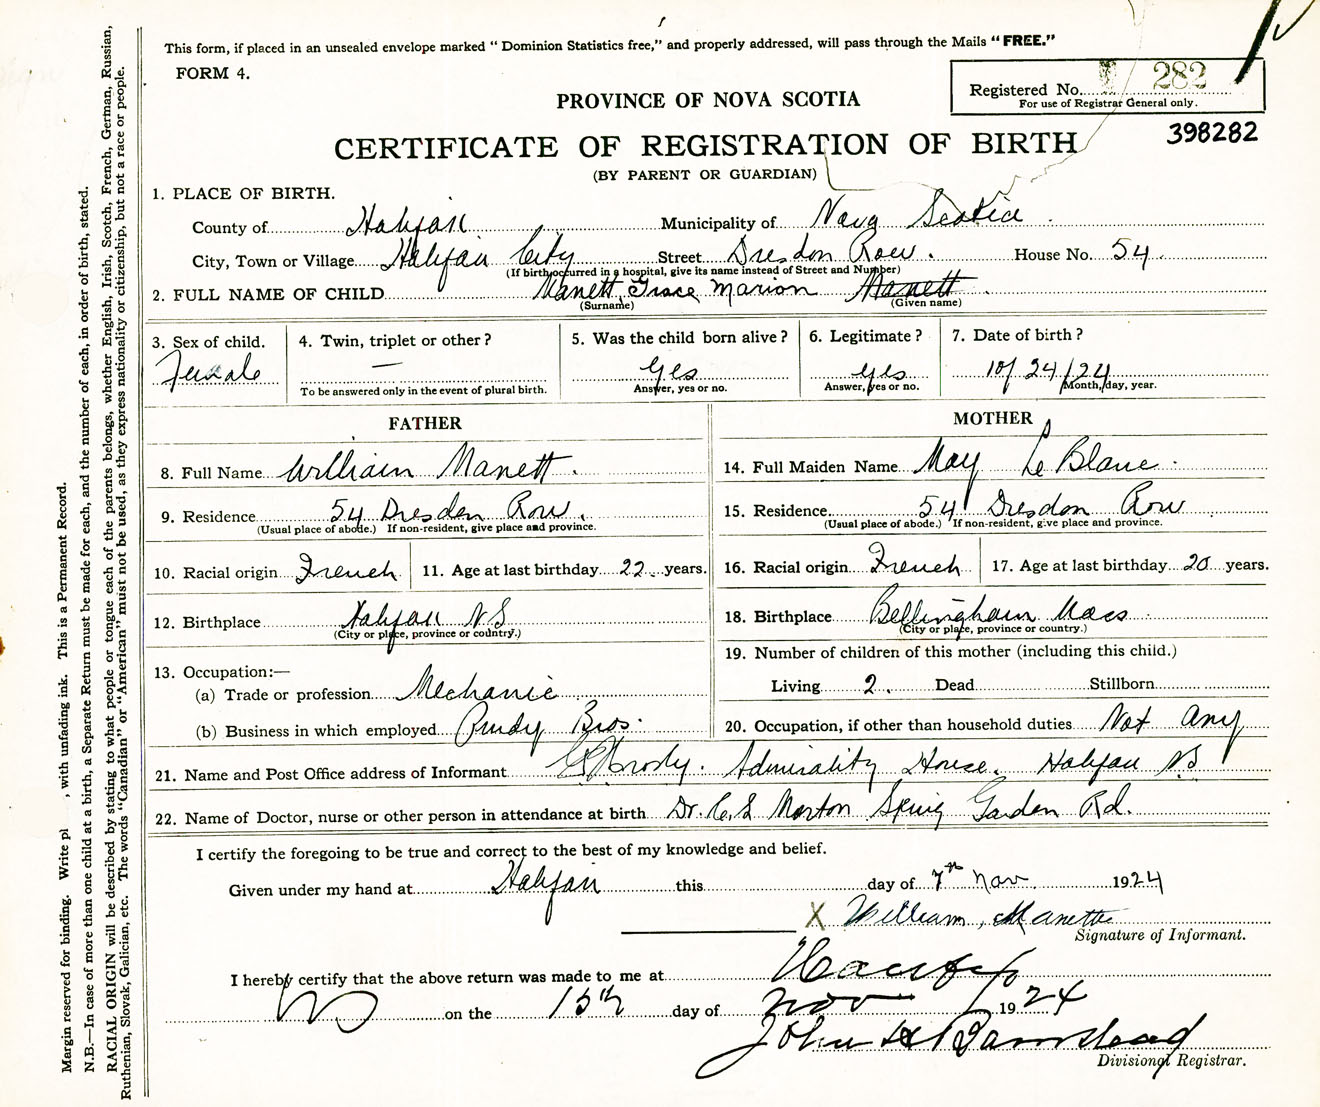 This form, if placed in an unsealed envelope marked "Dominion Statistics free," and properly addressed, will pass through the Mails "FREE."
FORM 4.
Registered No. 282
For use of Registrar General only.
PROVINCE OF NOVA SCOTIA
398282
CERTIFICATE OF REGISTRATION OF BIRTH
(BY PARENT OR GUARDIAN)
1. PLACE OF BIRTH.
County of Halifax Municipality of Nova Scotia
City, Town or Village Halifax City Street Dresdon Row. House No. 54.
(If birth occurred in a hospital, give its name instead of Street and Number)
2. FULL NAME OF CHILD Manett, Grace Marion Manett
(Surname) (Given name)
3. Sex of child. 4. Twin, triplet or other? 5. Was the child born alive? 6. Legitimate? 7. Date of birth?
Female — Yes yes 10/24/24
To be answered only in the event of plural birth. Answer, yes or no. Answer, yes or no. Month, day, year.
FATHER
8. Full Name William Manett.
9. Residence 54 Dresden Row.
(Usual place of abode.) If non-resident, give place and province.
10. Racial origin French 11. Age at last birthday 22 years.
12. Birthplace Halifax N S
(City or place, province or country.)
13. Occupation:—
(a) Trade or profession Mechanic
(b) Business in which employed Purdy Bros.
MOTHER
14. Full Maiden Name May Le Blanc.
15. Residence 54 Dresdon Row
(Usual place of abode.) If non-resident, give place and province.
16. Racial origin French 17. Age at last birthday 20 years.
18. Birthplace Bellingham Mass
(City or place, province or country.)
19. Number of children of this mother (including this child.)
Living 2. Dead Stillborn
20. Occupation, if other than household duties Not Any
21. Name and Post Office address of Informant Admirality House. Halifax N.S
22. Name of Doctor, nurse or other person in attendance at birth Dr. C. S Morton Spring Garden Rd.
I certify the foregoing to be true and correct to the best of my knowledge and belief.
Given under my hand at Halifax this day of 7th Nov 1924
X William, Manette
Signature of Informant.
I hereby certify that the above return was made to me at Halifax
on the 15th day of Nov 1924
John H Barnstead
Divisional Registrar.
Margin reserved for binding. Write pl , with unfading ink. This is a Permanent Record.
N.B.—In case of more than one child at a birth, a Separate Return must be made for each, and the number of each, in order of birth, stated.
RACIAL ORIGIN will be described by stating to what people or tongue each of the parents belongs, whether English, Irish, Scotch, French, German, Russian,
Ruthenian, Slovak, Galician, etc. The words "Canadian" or "American" must not be used, as they express nationality or citizenship, but not a race or people.